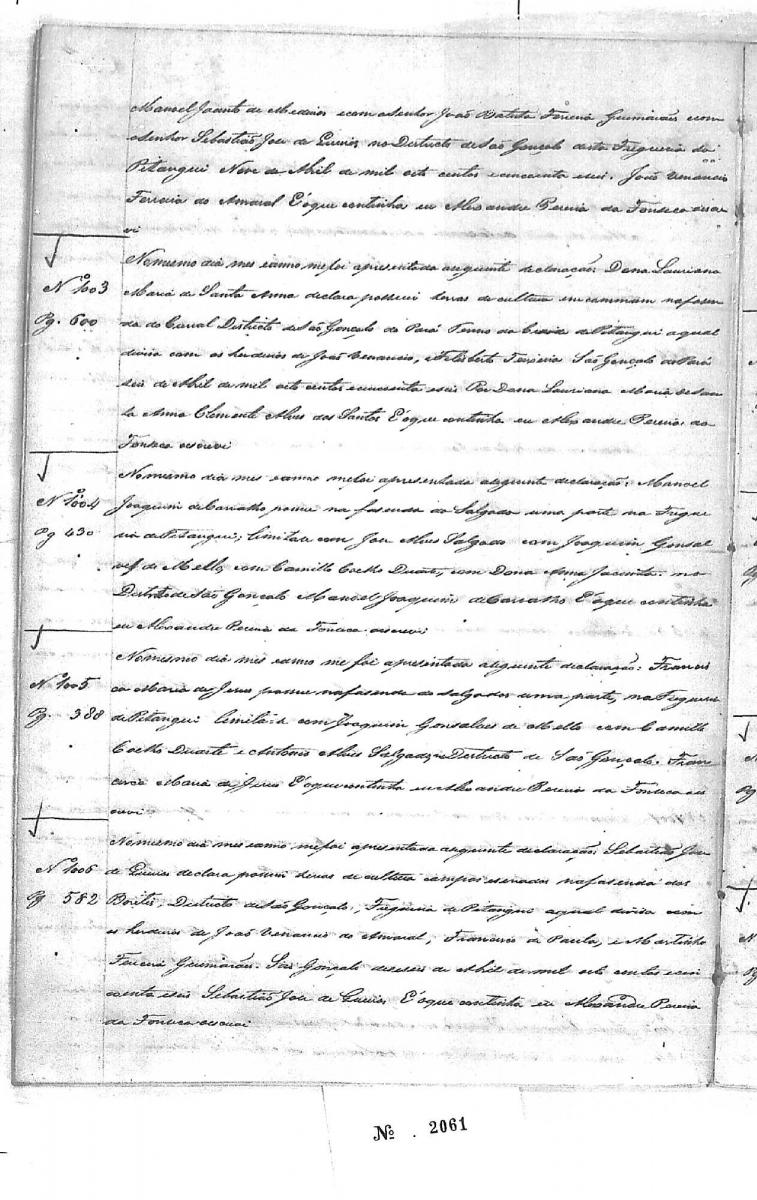 Manoel Jacinto de Medeiros ecom oSenhor João Batista Fereira Guimarães ecom
oSenhor Sebastião Joze de no Destricto deSão Gonçalo desta Freguezia do
Pitangui Nove de Abril de mil oito centos ecincoenta eseis. João Venancio
Ferreira do Amaral Eoque continha eu Alexandre Pereira da Fonseca oescre
vi
Nomesmo dia mes eanno mefoi apresentada aseguinte declaração: Dona Lauriana
Nº 1003
Maria de Santa Anna declara possuir terras de cultura emcommum nafasen
Pg. 600
da do Curral Districto deSão Gonçalo do Pará Termo da Cidade de Pitangui aqual
divisa com os herdeiros de João Venancio, eFelisberto Ferreira São Gonçalo doPará
seis de Abril de mil oito centos ecincoenta eseis Por Dona Lauriana Maria deSan
ta Anna Clemente Alves dos Santos Eoque continha eu Alexandre Pereira da
Fonseca oescrevi
Nomesmo dia mes eanno mefoi apresentada aseguinte declaração: Manoel
Nº 1004
Joaquim deCarvalho possue na fasenda do Salgado uma parte na Fregue
Pg 430
sia dePitangui; limitase com Joze Alves Salgado com Joaquim Gonsal
ves de Mello, com Camillo Coelho Duarte, com Dona Anna Jacinta. no
Destrito deSão Gonçalo Manoel Joaquim deCarvalho Eoque continha
eu Alexandre Pereira da Fonseca oescrevi
Nomesmo dia mes eanno me foi apresentada aseguinte declaração: Francis
Nº 1005
ca Maria de Jesus possue nafasenda do Salgados uma parte, na Freguesia
Pg. 388
dePitangui limita-se com Joaquim Gonsalves de Mello com Camillo
Coelho Duarte e Antonio Alves Salgado, Destricto de São Gonçalo. Fran
cisca Maria de Jesus Eoquecontinha euAlexandre Pereira da Fonseca oes
crevi
Nomesmo dia mes eanno, mefoi apresentada aseguinte declaração: Sebastião Joze
Nº 1006
de declara possuir terras de cultura campos eserrados nafasenda dos
Pg 582
Destricto deSão Gonçalo, Freguesia de Pitangui aqual divisa com
os herdeiros de João Venancio do Amaral, Francisco de Paula, e Martinho
Fereira Guimarães. São Gonçalo deseseis de Abril de mil oito centos ecin
coenta eseis Sebastião Joze de Eoque continha eu Alexandre Pereira
da Fonseca oescrevi
Nº . 2061